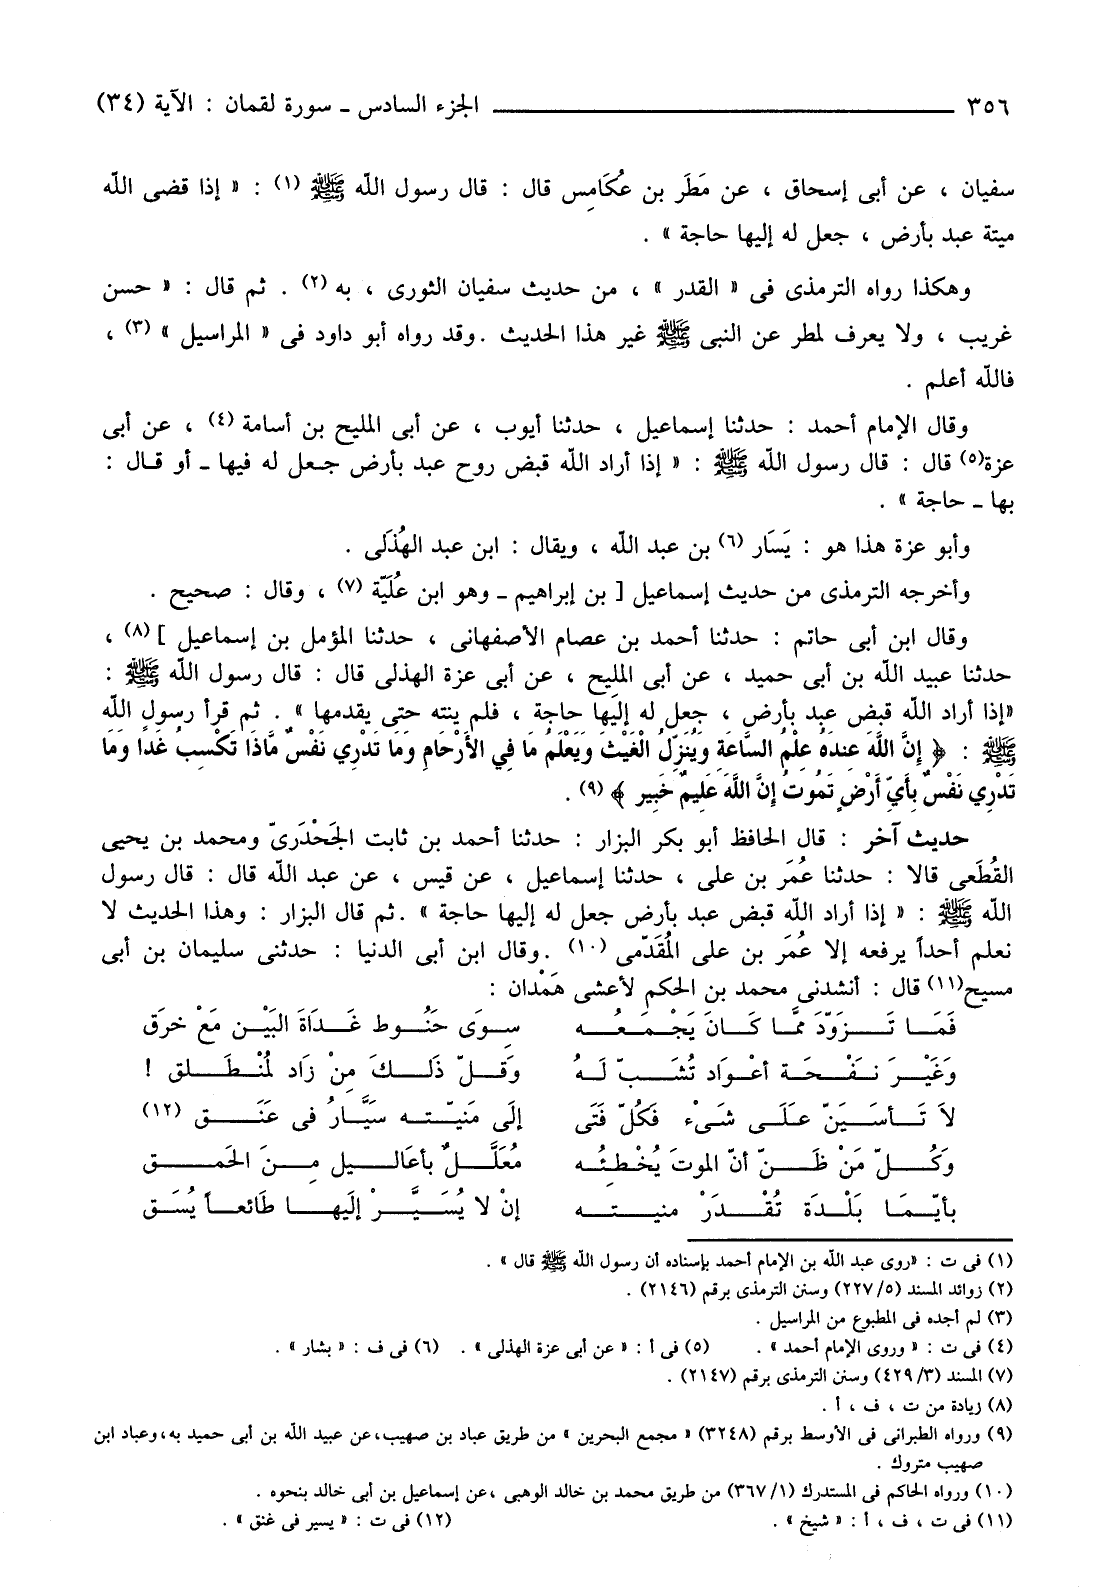 ٣٥٦ ــــــــــــ الجزء السادس ـ سورة لقمان : الآية (٣٤)
سفيان ، عن أبى إسحاق ، عن مَطَر بن عُكَامِس قال : قال رسول الله ﷺ (١) : « إذا قضى الله
ميتة عبد بأرض ، جعل له إليها حاجة » .
وهكذا رواه الترمذى فى « القدر » ، من حديث سفيان الثورى ، به (٢) . ثم قال : « حسن
غريب ، ولا يعرف لمطر عن النبى ﷺ غير هذا الحديث .وقد رواه أبو داود فى « المراسيل » (٣) ،
فالله أعلم .
وقال الإمام أحمد : حدثنا إسماعيل ، حدثنا أيوب ، عن أبى المليح بن أسامة (٤) ، عن أبى
عزة(٥) قال : قال رسول الله ﷺ : « إذا أراد الله قبض روح عبد بأرض جعل له فيها ـ أو قال :
بها ـ حاجة » .
وأبو عزة هذا هو : يَسَار (٦) بن عبد الله ، ويقال : ابن عبد الهُذَلى .
وأخرجه الترمذى من حديث إسماعيل [ بن إبراهيم ـ وهو ابن عُلَيّة (٧) ، وقال : صحيح .
وقال ابن أبى حاتم : حدثنا أحمد بن عصام الأصفهانى ، حدثنا المؤمل بن إسماعيل ] (٨) ،
حدثنا عبيد الله بن أبى حميد ، عن أبى المليح ، عن أبى عزة الهذلى قال : قال رسول الله ﷺ :
«إذا أراد الله قبض عبد بأرض ، جعل له إليها حاجة ، فلم ينته حتى يقدمها » . ثم قرأ رسول الله
ﷺ : ﴿ إِنَّ اللَّهَ عِندَهُ عِلْمُ السَّاعَةِ وَيُنَزِّلُ الْغَيْثَ وَيَعْلَمُ مَا فِي الأَرْحَامِ وَمَا تَدْرِي نَفْسٌ مَّاذَا تَكْسِبُ غَدًا وَمَا
تَدْرِي نَفْسٌ بِأَيِّ أَرْضٍ تَمُوتُ إِنَّ اللَّهَ عَلِيمٌ خَبِير ﴾ (٩) .
حديث آخر : قال الحافظ أبو بكر البزار : حدثنا أحمد بن ثابت الجَحْدَرىّ ومحمد بن يحيى
القُطَعى قالا : حدثنا عُمَر بن على ، حدثنا إسماعيل ، عن قيس ، عن عبد الله قال : قال رسول
الله ﷺ : « إذا أراد الله قبض عبد بأرض جعل له إليها حاجة » .ثم قال البزار : وهذا الحديث لا
نعلم أحداً يرفعه إلا عُمَر بن على المُقَدّمى (١٠) .وقال ابن أبى الدنيا : حدثنى سليمان بن أبى
مسيح(١١) قال : أنشدنى محمد بن الحكم لأعشى هَمْدان :
فَمَا تَزَوّدَ ممَّا كَانَ يَجْمَعُه سِوَى حَنُوط غَدَاةَ البَيْن مَعْ خرَق
وَغَيْرَ نَفْحَة أعْوَاد تُشَبّ لَهُ وَقَلّ ذَلكَ مِنْ زَاد لمُنْطَلق !
لاَ تَأسَيَنّ عَلَى شَىْء فَكُلّ فَتَى إلَى مَنيّته سَيَّارُ فى عَنَق (١٢)
وَكُلّ مَنْ ظَنّ أنّ الموتَ يُخْطئُه مُعَلَّلٌ بأعَاليل منَ الحَمق
بأيّمَا بَلْدَة تُقْدَرْ منيته إنْ لا يُسَيَّرْ إلَيها طَائعاً يُسَق
(١) فى ت : «روى عبد الله بن الإمام أحمد بإسناده أن رسول الله ﷺ قال » .
(٢) زوائد المسند (٥/ ٢٢٧) وسنن الترمذى برقم (٢١٤٦) .
(٣) لم أجده فى المطبوع من المراسيل .
(٤) فى ت : « وروى الإمام أحمد » . (٥) فى أ : « عن أبى عزة الهذلى » . (٦) فى ف : « بشار » .
(٧) المسند (٣/ ٤٢٩) وسنن الترمذى برقم (٢١٤٧) .
(٨) زيادة من ت ، ف ، أ .
(٩) ورواه الطبرانى فى الأوسط برقم (٣٢٤٨) « مجمع البحرين » من طريق عباد بن صهيب،عن عبيد الله بن أبى حميد به،وعباد ابن
صهيب متروك .
(١٠) ورواه الحاكم فى المستدرك (١/ ٣٦٧) من طريق محمد بن خالد الوهبى ،عن إسماعيل بن أبى خالد بنحوه .
(١١) فى ت ، ف ، أ : « شيخ » . (١٢) فى ت : « يسير فى غنق » .